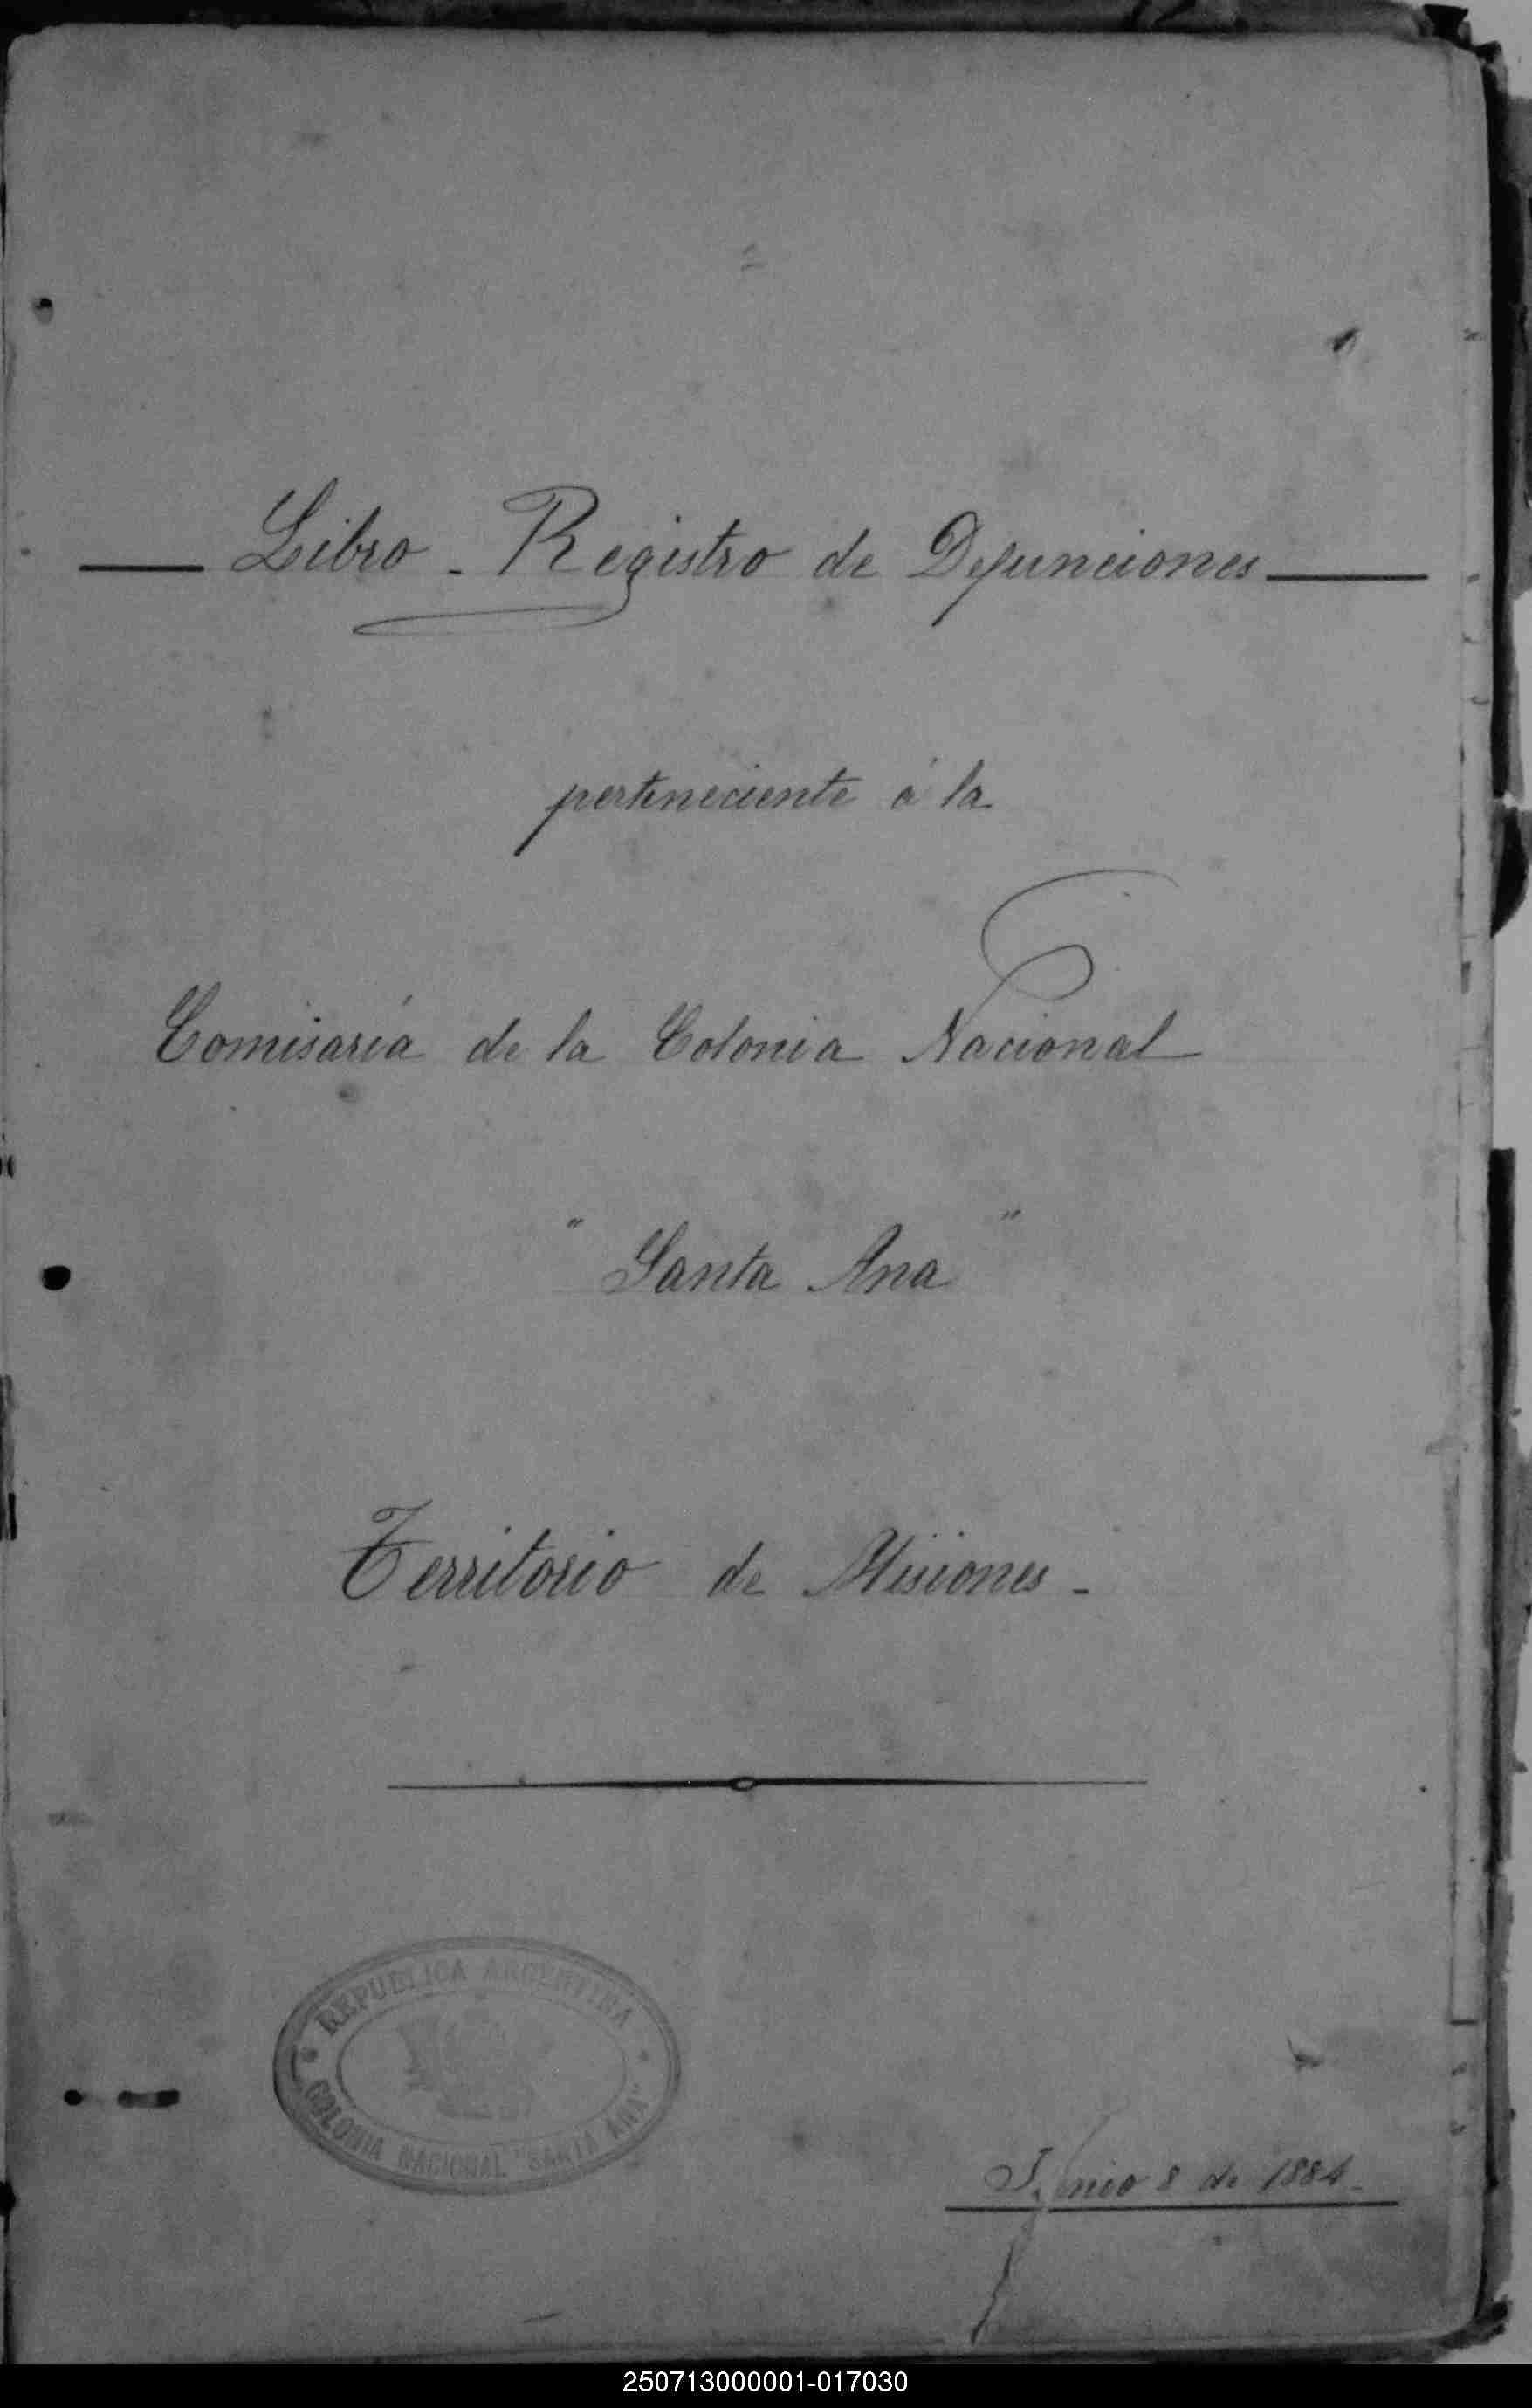 Libro - Registro de Defunciones
perteneciente á la
Comisaría de la Colonia Nacional
"Santa Ana"
Territorio de Misiones -
REPUBLICA ARGENTINA
COLONIA NACIONAL "SANTA ANA"
Junio 8 de 1884.
250713000001-017030